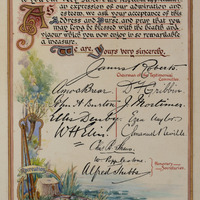 As an expression of our admiration and
esteem, we ask your acceptance of this
Address and Purse, and pray that you may
long be blessed with the health and
vigour which you now enjoy in so remarkable
a measure.
We are, Yours very sincerely,
James Roberts,
Chairman of the Testimonial
Committee.
Amos Brear J. H. Gribbin
John A. Burton J. Mortimer
Ellis Denby Ezra Naylor
W H Ellis Emanuel Naville
Alfred Stubbs
Honorary
Secretaries